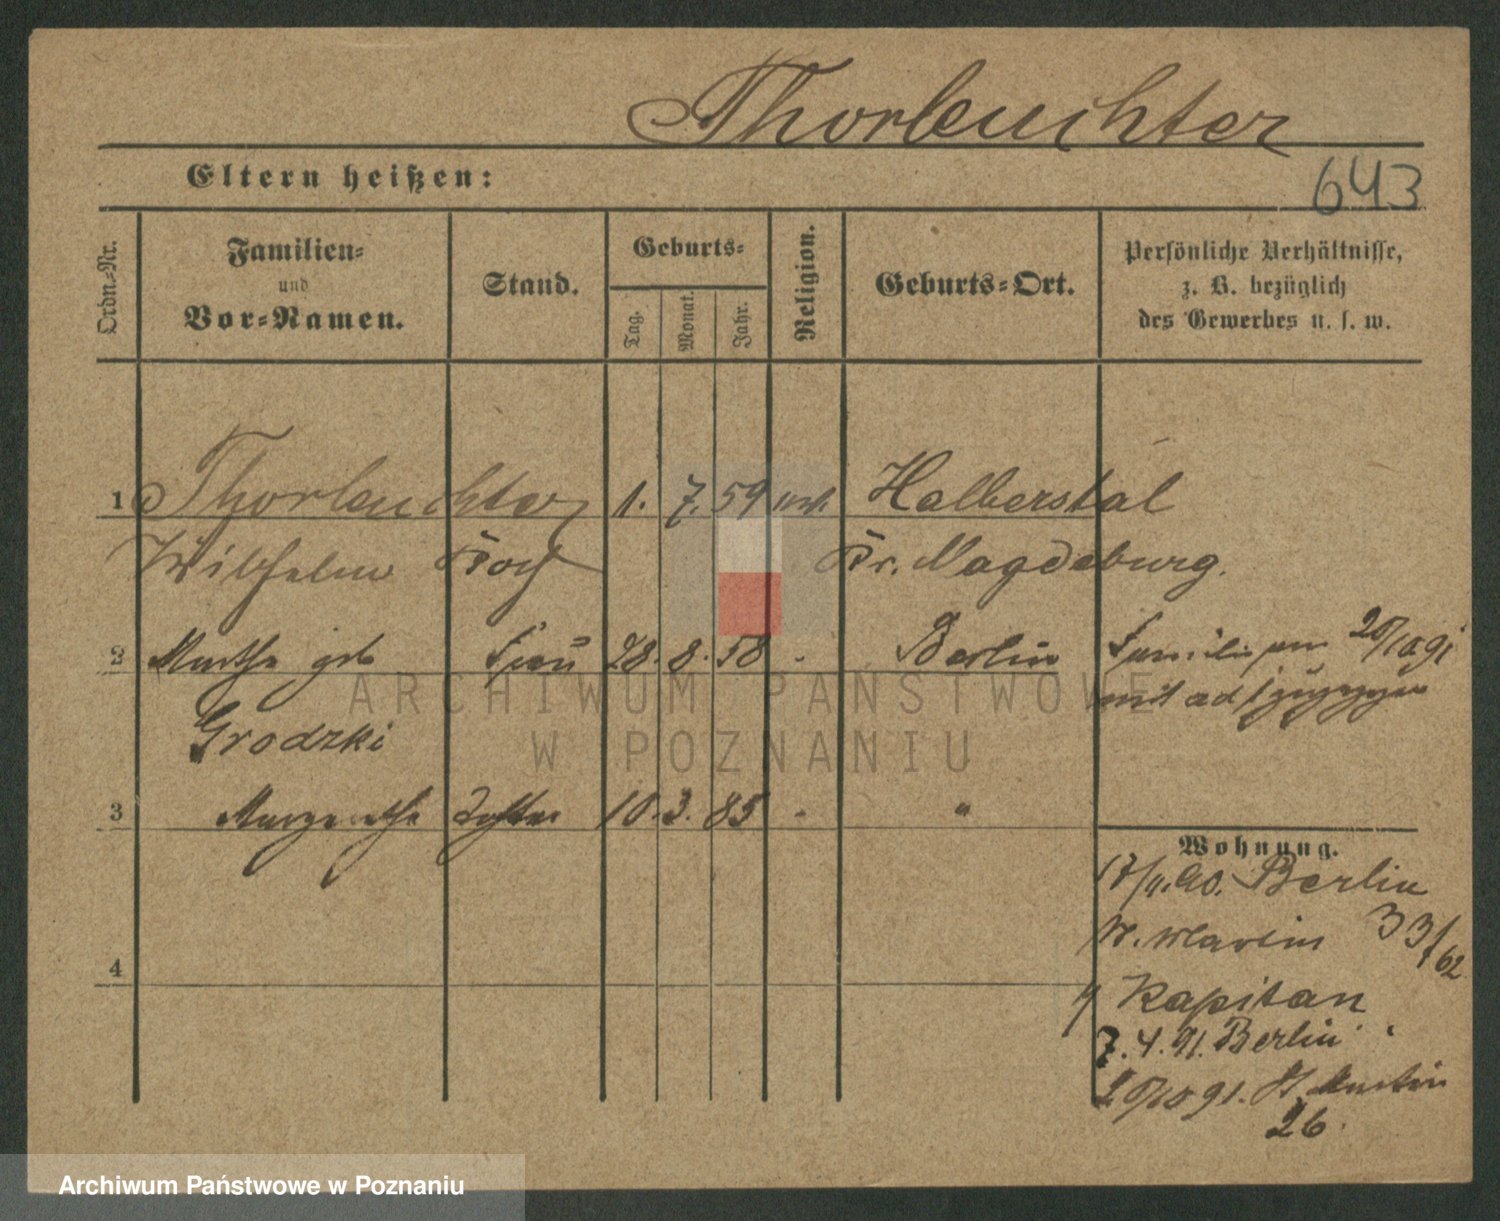 Thorleuchter
Eltern heißen:
643
Ordn.-Nr.
Familien-
und
Vor-Namen.
Stand.
Geburts-
Tag.
Monat.
Jahr.
Religion.
Geburts-Ort.
Persönliche Verhältnisse,
z. B. bezüglich
des Gewerbes u. s. w.
1 Thorleuchter 1. 7. 59 Halberstal
Wilhelm Koch Kr. Magdeburg.
2 Marthe geb Frau 28. 8. 58 - Berlin
Familie
mit
Grodzki
3 Margarethe Tochter 10. 3. 85 - "
Wohnung.
17/9. 90. Berlin
St. Martin 33/62
Kapitan
7. 4. 91. Berlin
91. St Martin
26.
4
ARCHIWUM PAŃSTWOWE
W POZNANIU
Archiwum Państwowe w Poznaniu